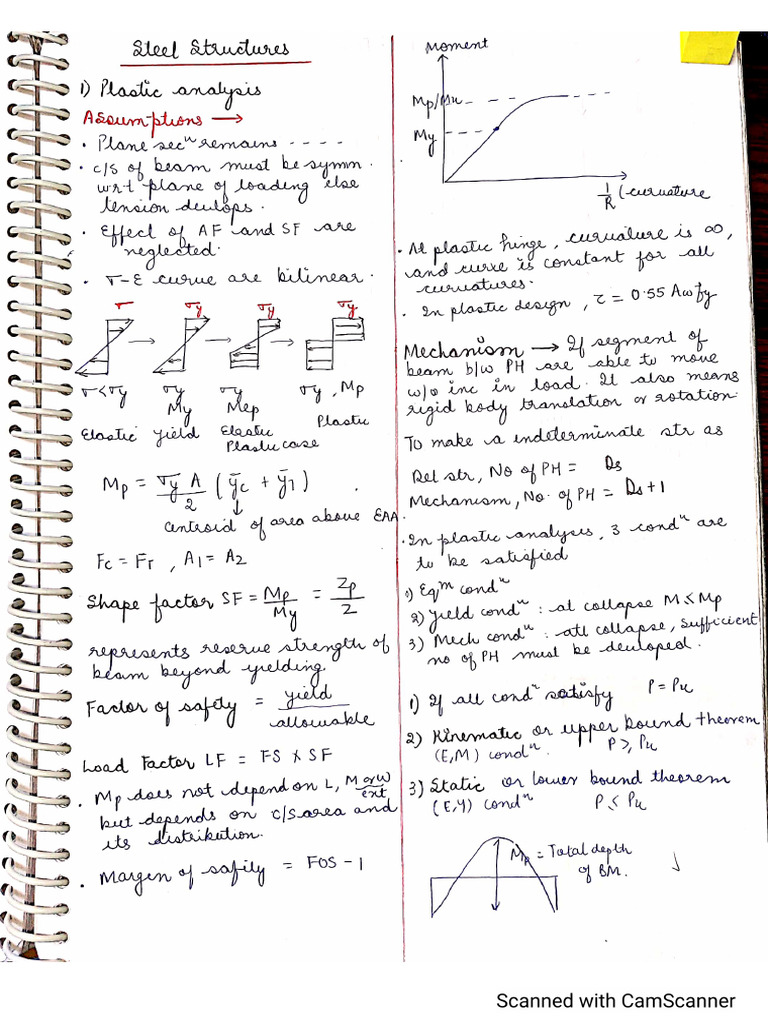 Steel Structures
1) Plastic analysis
Assumptions →
• Plane secⁿ remains ----
• c/s of beam must be symm.
wrt plane of loading else
tension devlops.
• Effect of AF and SF are
neglected.
• σ-ε curve are bilinear.
σ σy σy σy
σ<σy σy σy σy, Mp
My Mep
Elastic yield Elastic Plastic
Plastic case
Mp = σy A/2 (ȳc + ȳT)
centroid of area above EAA.
Fc = FT, A1 = A2
Shape factor SF = Mp/My = Zp/Z
represents reserve strength of
beam beyond yielding
Factor of safety = yield/allowable
Load Factor LF = FS x SF
• Mp does not depend on L, M or W
ext
but depends on c/s area and
its distribution.
• Margin of safity = FOS - 1
Moment
Mp/Mu
My
1/R (curvature
• At plastic hinge, curvature is ∞,
and curve is constant for all
curvatures.
• In plastic design, τ = 0.55 Aw fy
Mechanism → If segment of
beam b/w PH are able to move
w/o inc in load. It also means
rigid body translation or rotation.
To make a indeterminate str as
Det str, No of PH = Ds
Mechanism, No. of PH = Ds + 1
• In plastic analysis, 3 condⁿ are
to be satisfied
1) Eqᵐ condⁿ
2) Yield condⁿ : at collapse M ≤ Mp
3) Mech condⁿ : att collapse, sufficient
no of PH must be devloped.
1) If all condⁿ satisfy P = Pu
2) Kinematic or upper bound theorem
(E,M) condⁿ P ≥ Pu
3) Static or lower bound theorem
(E,Y) condⁿ P ≤ Pu
Mp = Total depth
of BM.
Scanned with CamScanner